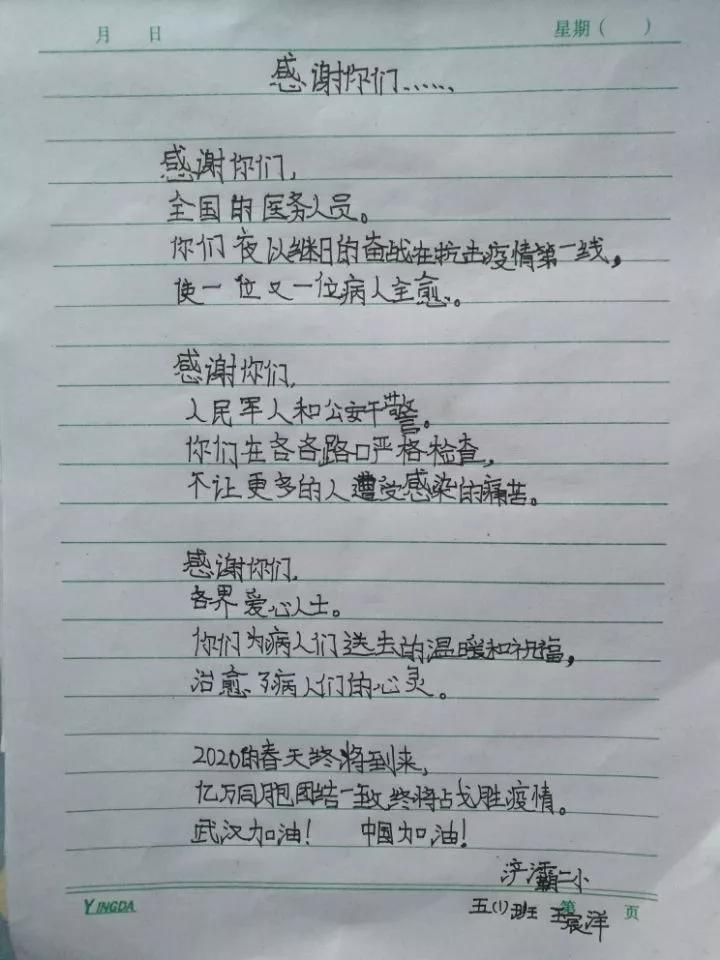 月 日 星期( )
感谢你们……
感谢你们,
全国的医务人员。
你们夜以继日的奋战在抗击疫情第一线,
使一位又一位病人全愈。
感谢你们,
人民军人和公安干警。
你们在各各路口严格检查,
不让更多的人遭受感染的痛苦。
感谢你们,
各界爱心人士。
你们为病人们送去的温暖和祝福,
治愈了病人们的心灵。
2020的春天终将到来,
亿万同胞团结一致终将战胜疫情。
武汉加油! 中国加油!
浐灞二小
YINGDA 第 页
五(1)班 王宸洋